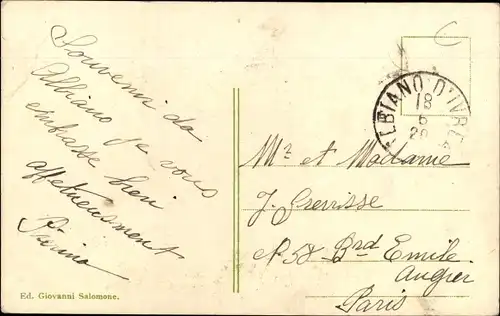 Souvenir da
Albiano je vous
embrasse bien
affetueusement
Pierino
Ed. Giovanni Salomone.
ALBIANO D'IVREA
18
6
Mr et Madame
J. Grevisse
N 58 Brd Emile
Augier
Paris